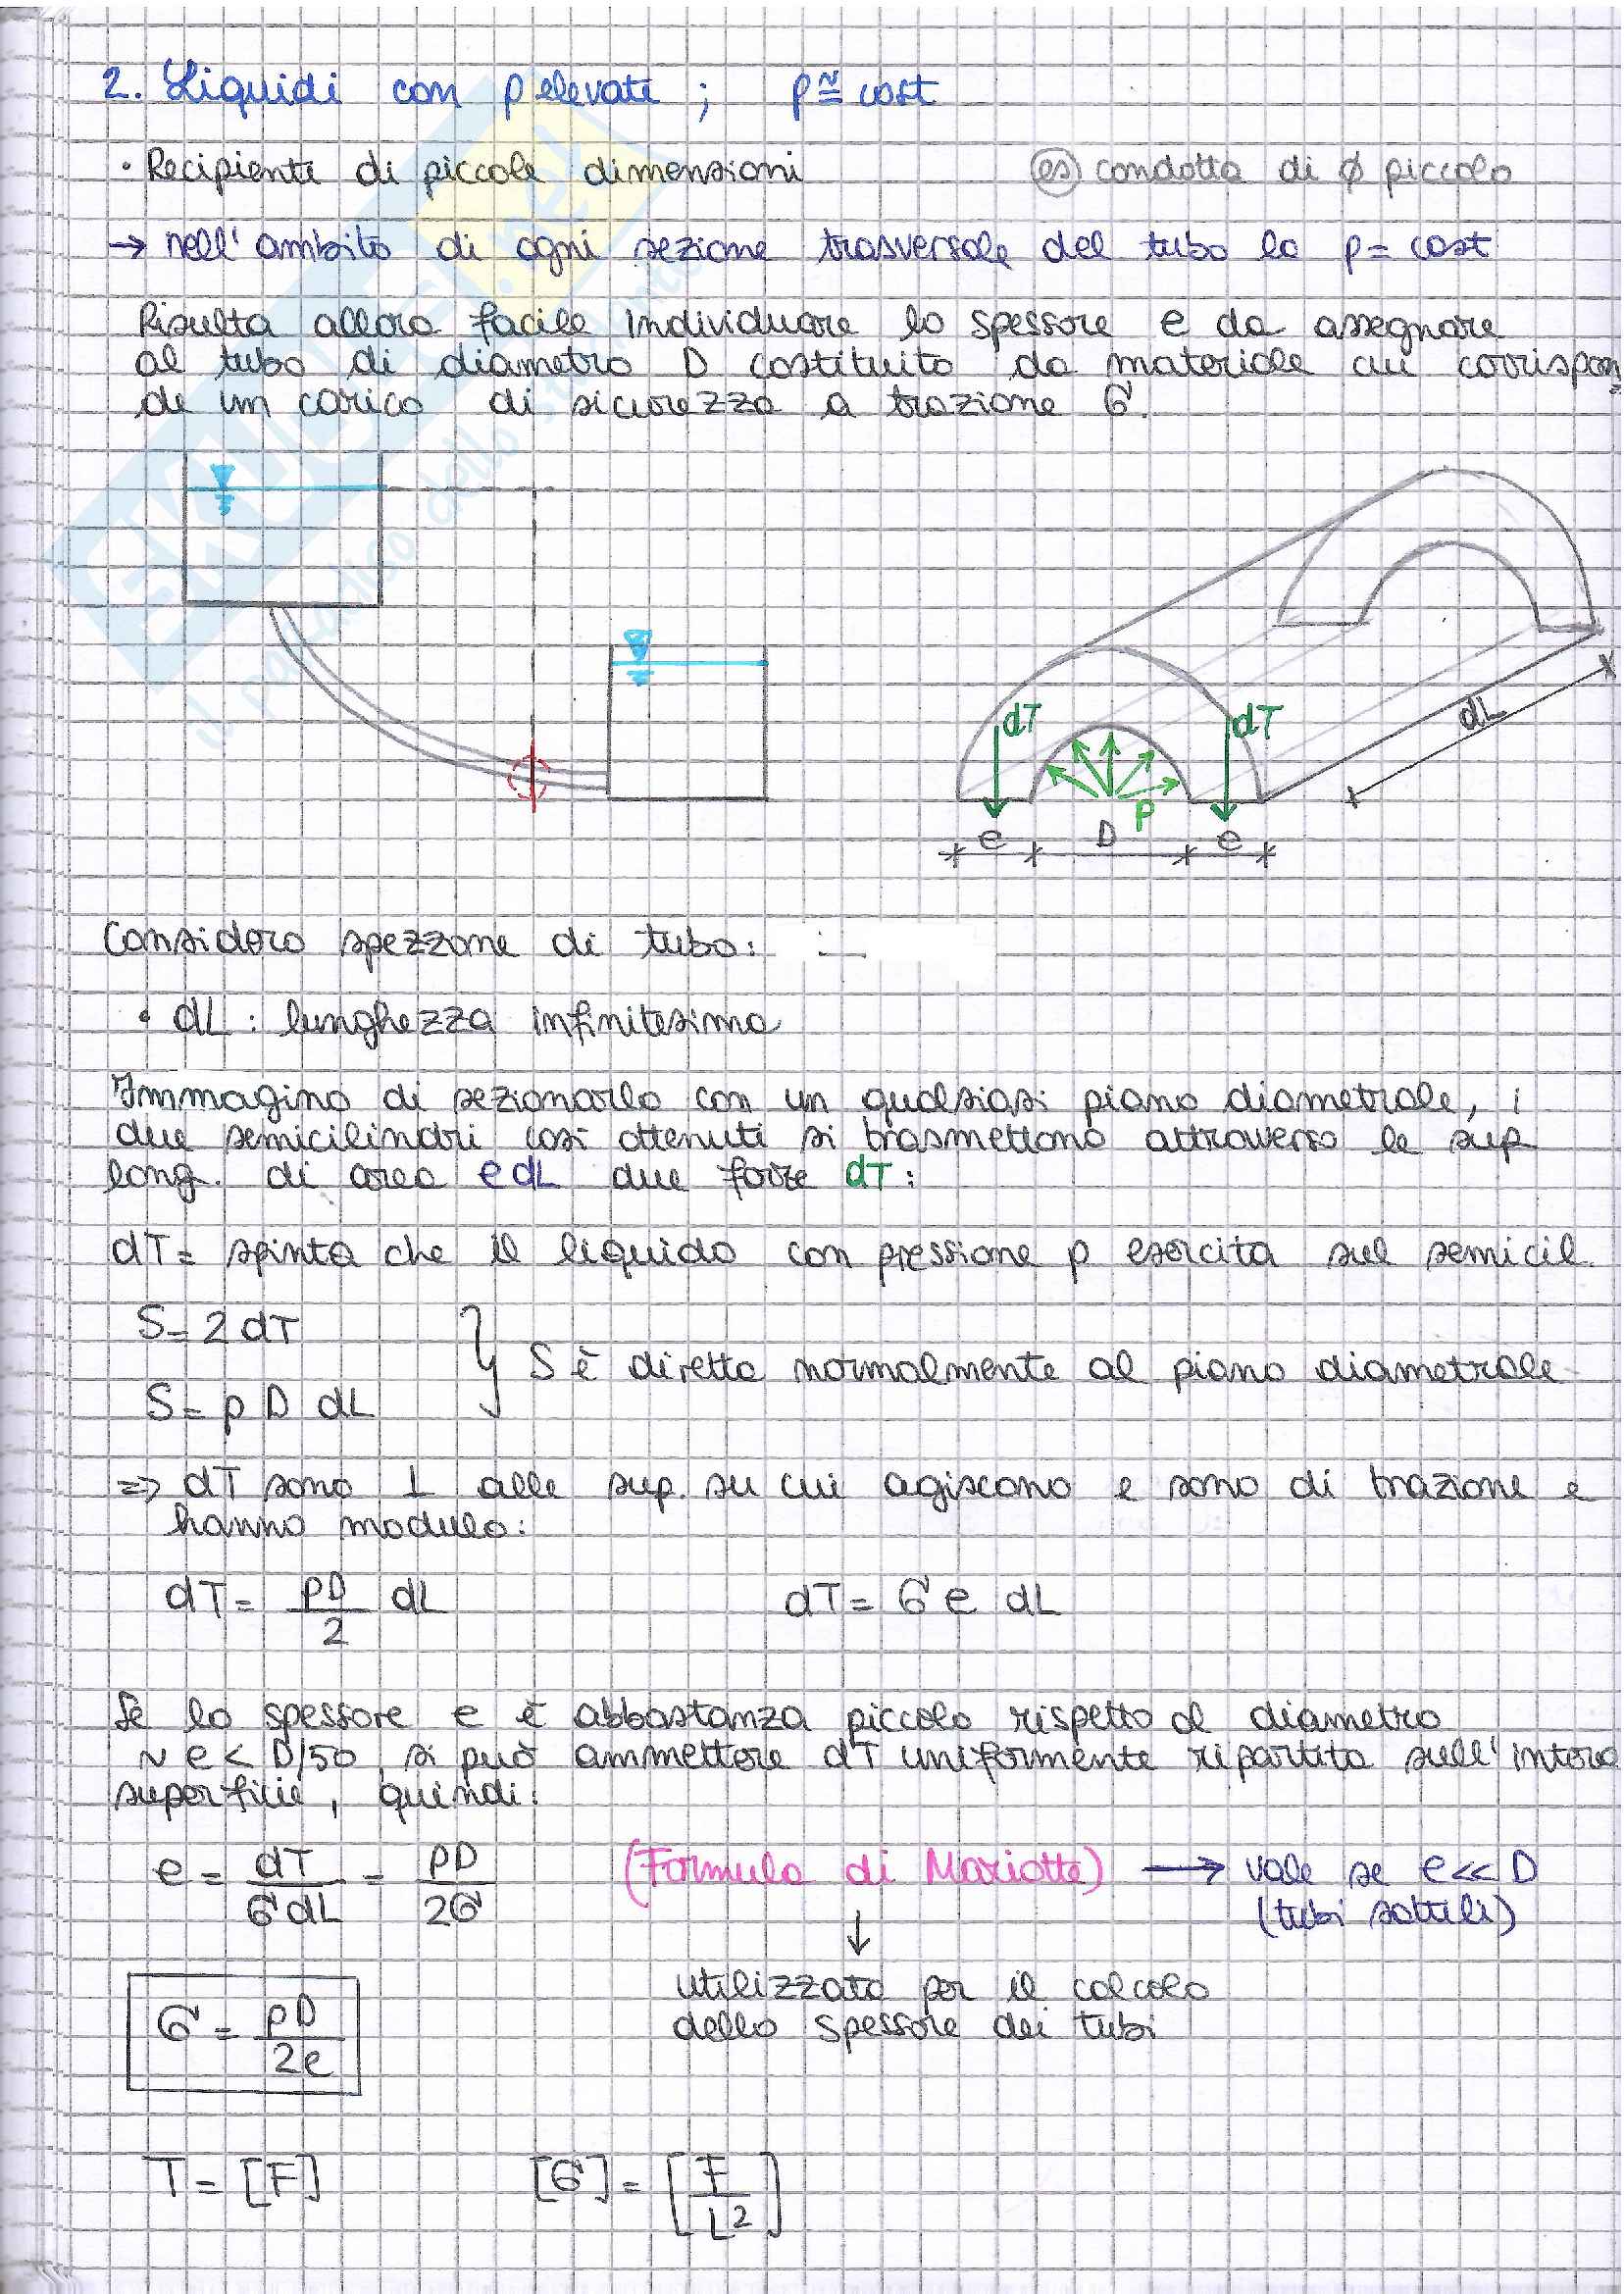 2. Liquidi con p elevati ; p ≅ cost
• Recipienti di piccole dimensioni (es) condotta di ϕ piccolo
→ nell' ambito di ogni sezione trasversale del tubo la p = cost
Risulta allora facile individuare lo spessore e da assegnare
al tubo di diametro D costituito da materiale cui corrispon
de un carico di sicurezza a trazione σ.
dT
dT
dL
p
e
D
e
Considero spezzone di tubo:
• dL : lunghezza infinitesima
Immagino di sezionarlo con un qualsiasi piano diametrale, i
due semicilindri così ottenuti si trasmettono attraverso le sup
long. di area e dL due forze dT :
dT = spinta che il liquido con pressione p esercita sul semicil.
S = 2 dT
} S è diretta normalmente al piano diametrale
S = p D dL
=> dT sono ⊥ alle sup. su cui agiscono e sono di trazione e
hanno modulo:
dT = pD/2 dL dT = σ e dL
Se lo spessore e è abbastanza piccolo rispetto al diametro
~ e < D/50, si può ammettere dT uniformente ripartita sull' intera
superficie, quindi:
e = dT/σdL = pD/2σ (Formula di Mariotte) → vale se e << D
(tubi sottili)
↓
utilizzata per il calcolo
dello spessore dei tubi
σ = pD/2e
T = [F] [σ] = [F/L²]